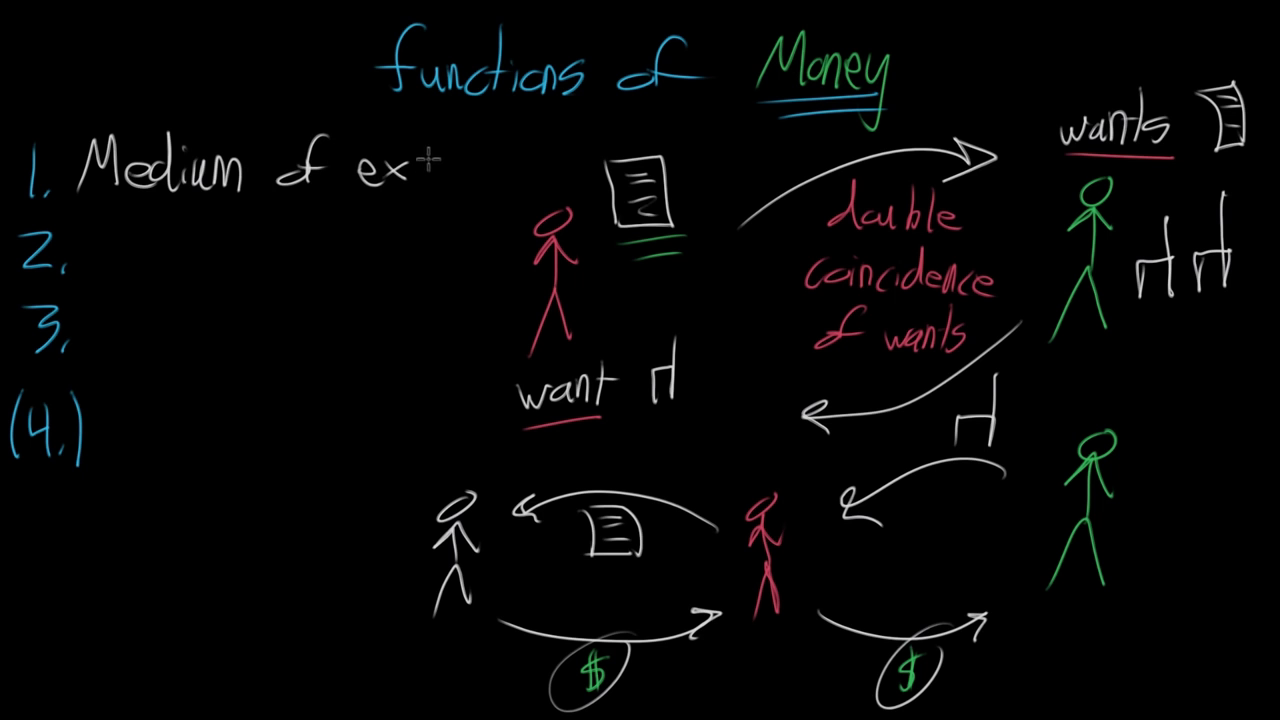 functions of Money
1. Medium of ex
2.
3.
(4.)
wants
double
coincidence
of wants
want
$
$